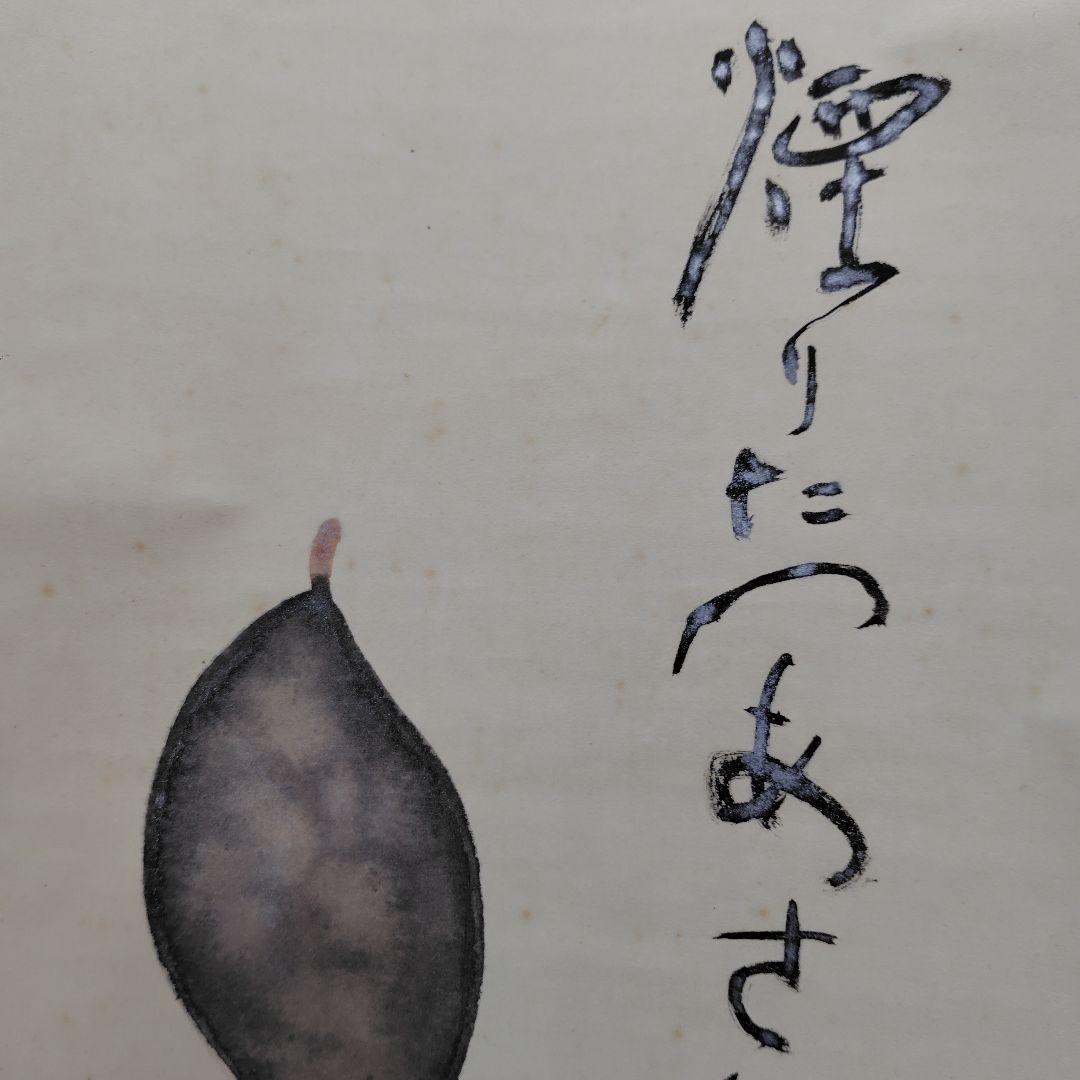 煙りたつあさ